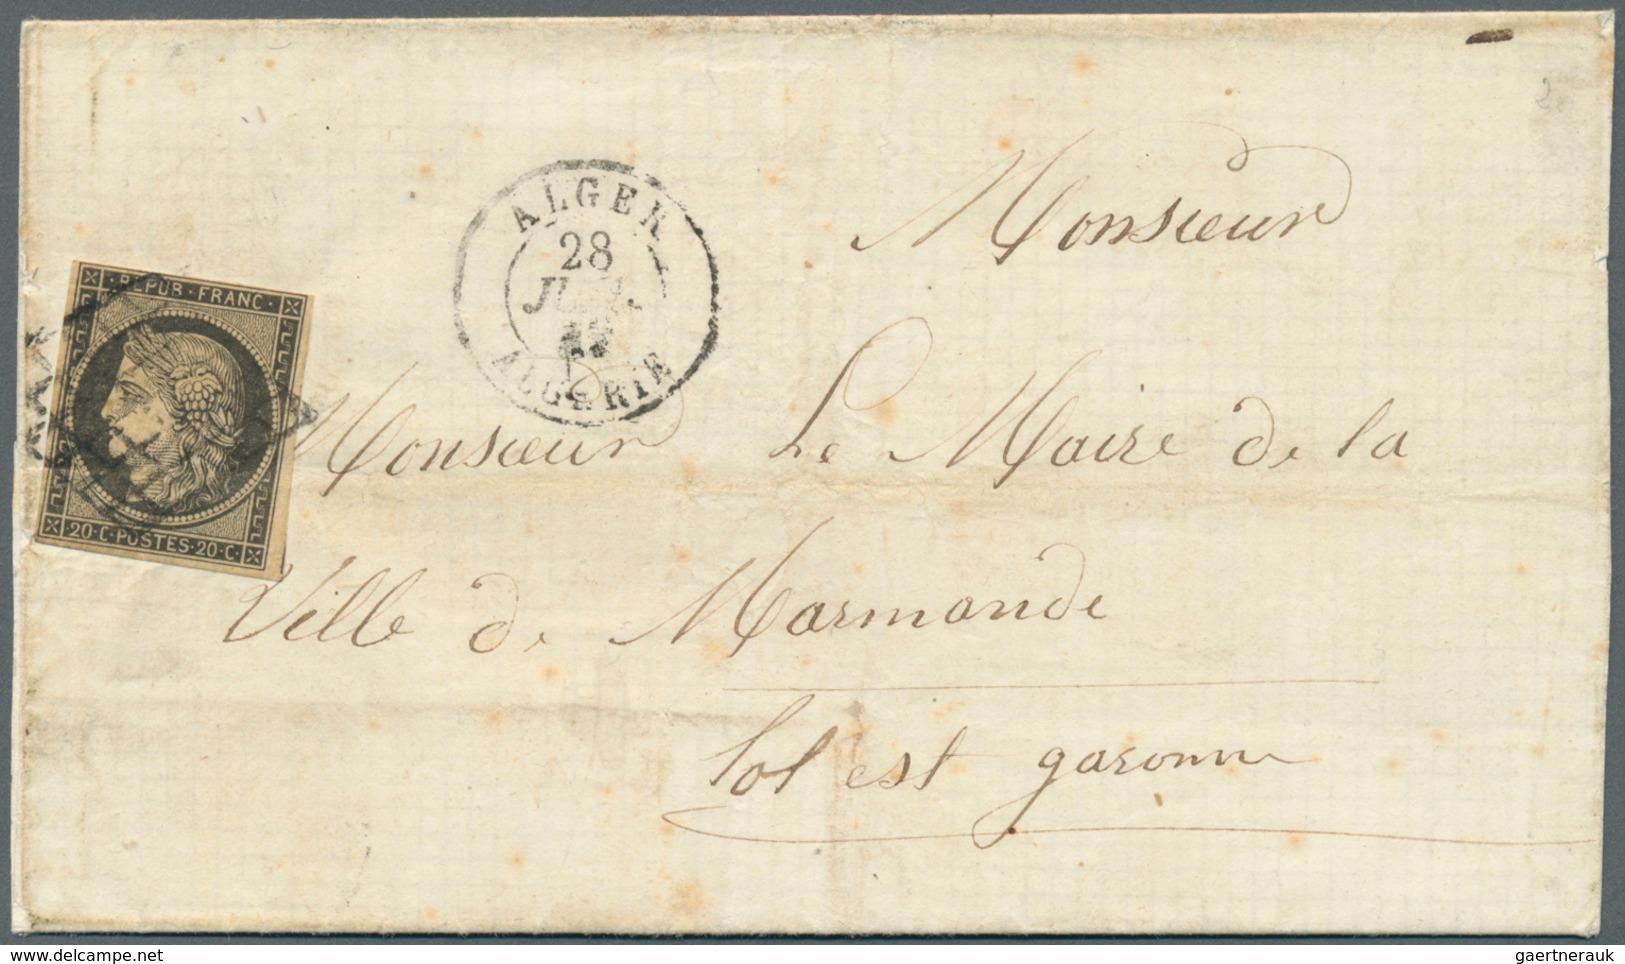 Monsieur
ALGER
28
JUIL.
ALGERIE
REPUB · FRANC ·
· 20 · C · POSTES · 20 · C ·
Monsieur Le Maire de la
Ville de Marmande
Lot est garonne
delcampe.net
gaertnerauk